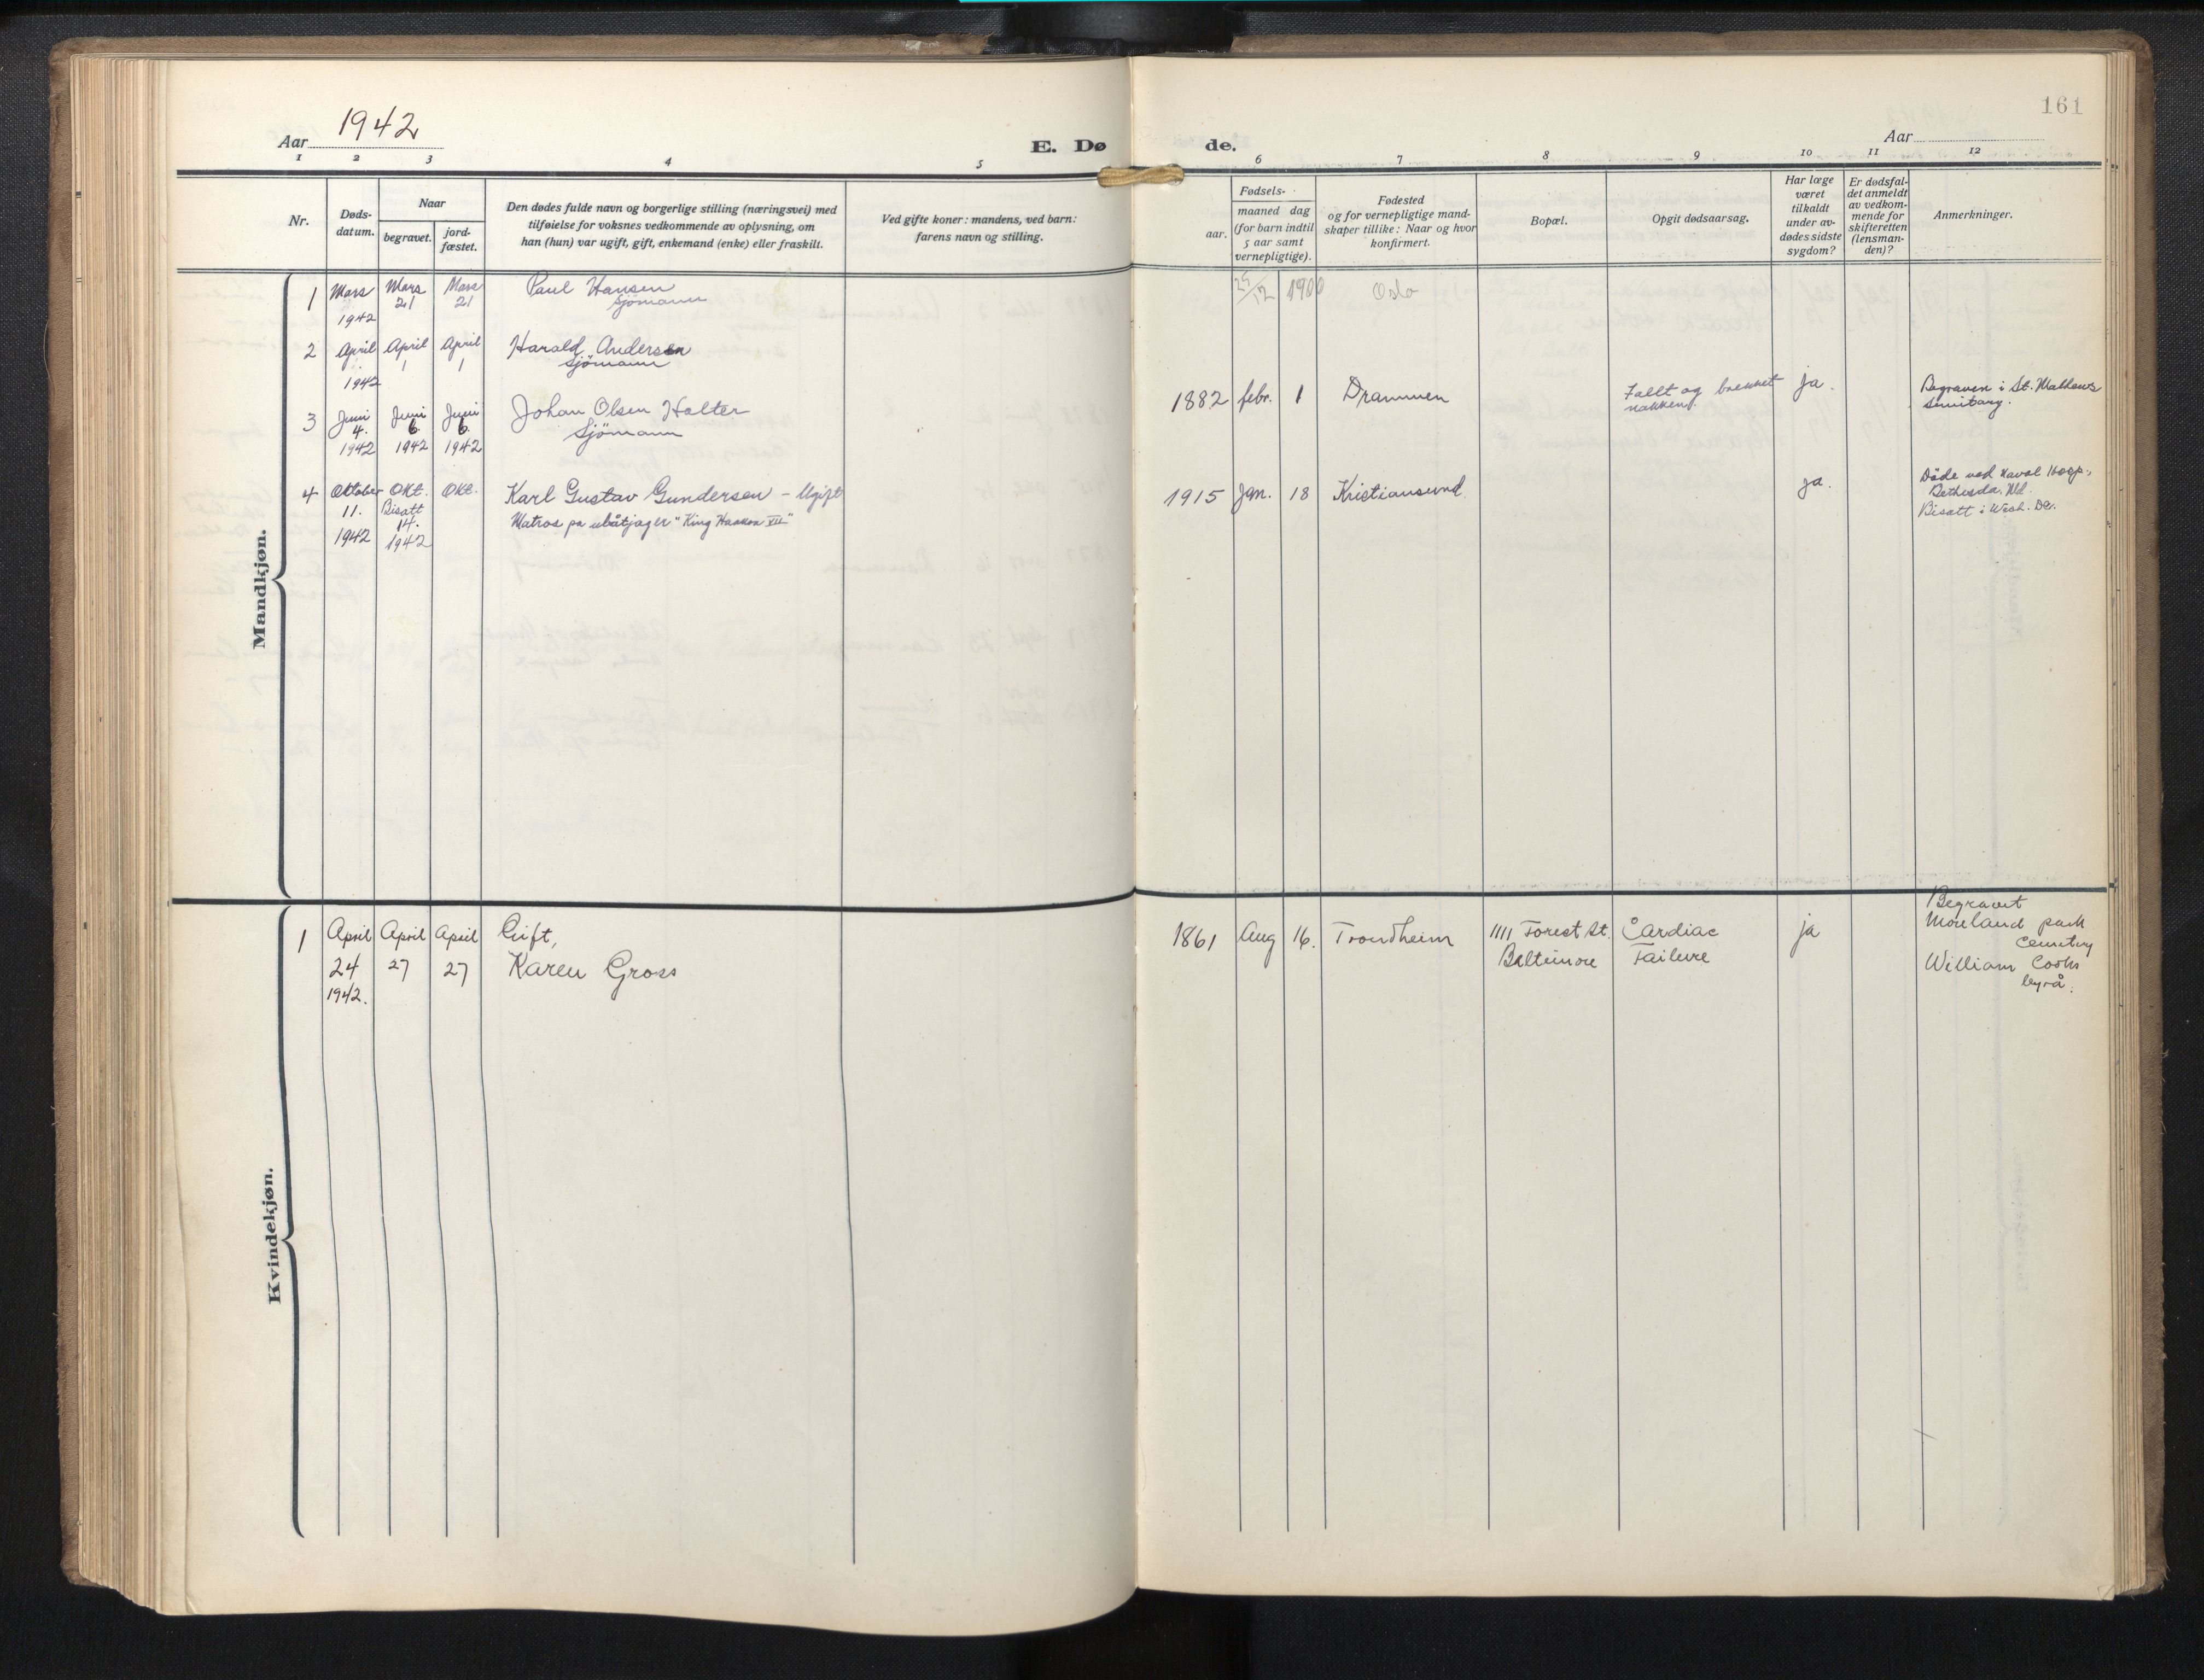 161
Aar 1942
E. Døde.
Aar
1 2 3 4 5 6 7 8 9 10 11 12
Nr.
Døds-
datum.
Naar
begravet.
jord-
fæstet.
Den dødes fulde navn og borgerlige stilling (næringsvei) med
tilføielse for voksnes vedkommende av oplysning, om
han (hun) var ugift, gift, enkemand (enke) eller fraskilt.
Ved gifte koner: mandens, ved barn:
farens navn og stilling.
Fødsels-
aar.
maaned dag
(for barn indtil
5 aar samt
vernepligtige).
Fødested
og for vernepligtige mand-
skaper tillike: Naar og hvor
konfirmert.
Bopæl.
Opgit dødsaarsag.
Har læge
været
tilkaldt
under av-
dødes sidste
sygdom?
Er dødsfal-
det anmeldt
av vedkom-
mende for
skifteretten
(lensman-
den)?
Anmerkninger.
Mandkjøn.
1 Mars Mars Mars Paul Hansen 25/12 1900 Oslo
21 21 Sjömann
1942
2 April April April Harald Andersen
1 1 Sjömann
1942
3 Juni Juni Juni Johan Olsen Holter 1882 febr. 1 Drammen Fallt og brekket ja. Begraven i St. Mathews
4. 6 6 Sjömann nakken.
1942 1942 1942
4 Oktober Okt. Okt. Karl Gustav Gundersen - Ugift 1915 Jan. 18 Kristiansund ja. Döde ved Naval Hosp.,
11. Bisatt Matros på ubåtjager "King Haakon VII" Bethesda. Md.
14. Bisatt i Wash. DC.
1942 1942
Kvindekjøn.
1 April April April Gift, 1861 Aug 16. Trondheim 1111 Forest St. Cardiac ja Begravet
24 27 27 Karen Gross Baltimore Failure Moreland park
1942. Cemetery
William Cooks
byrå.